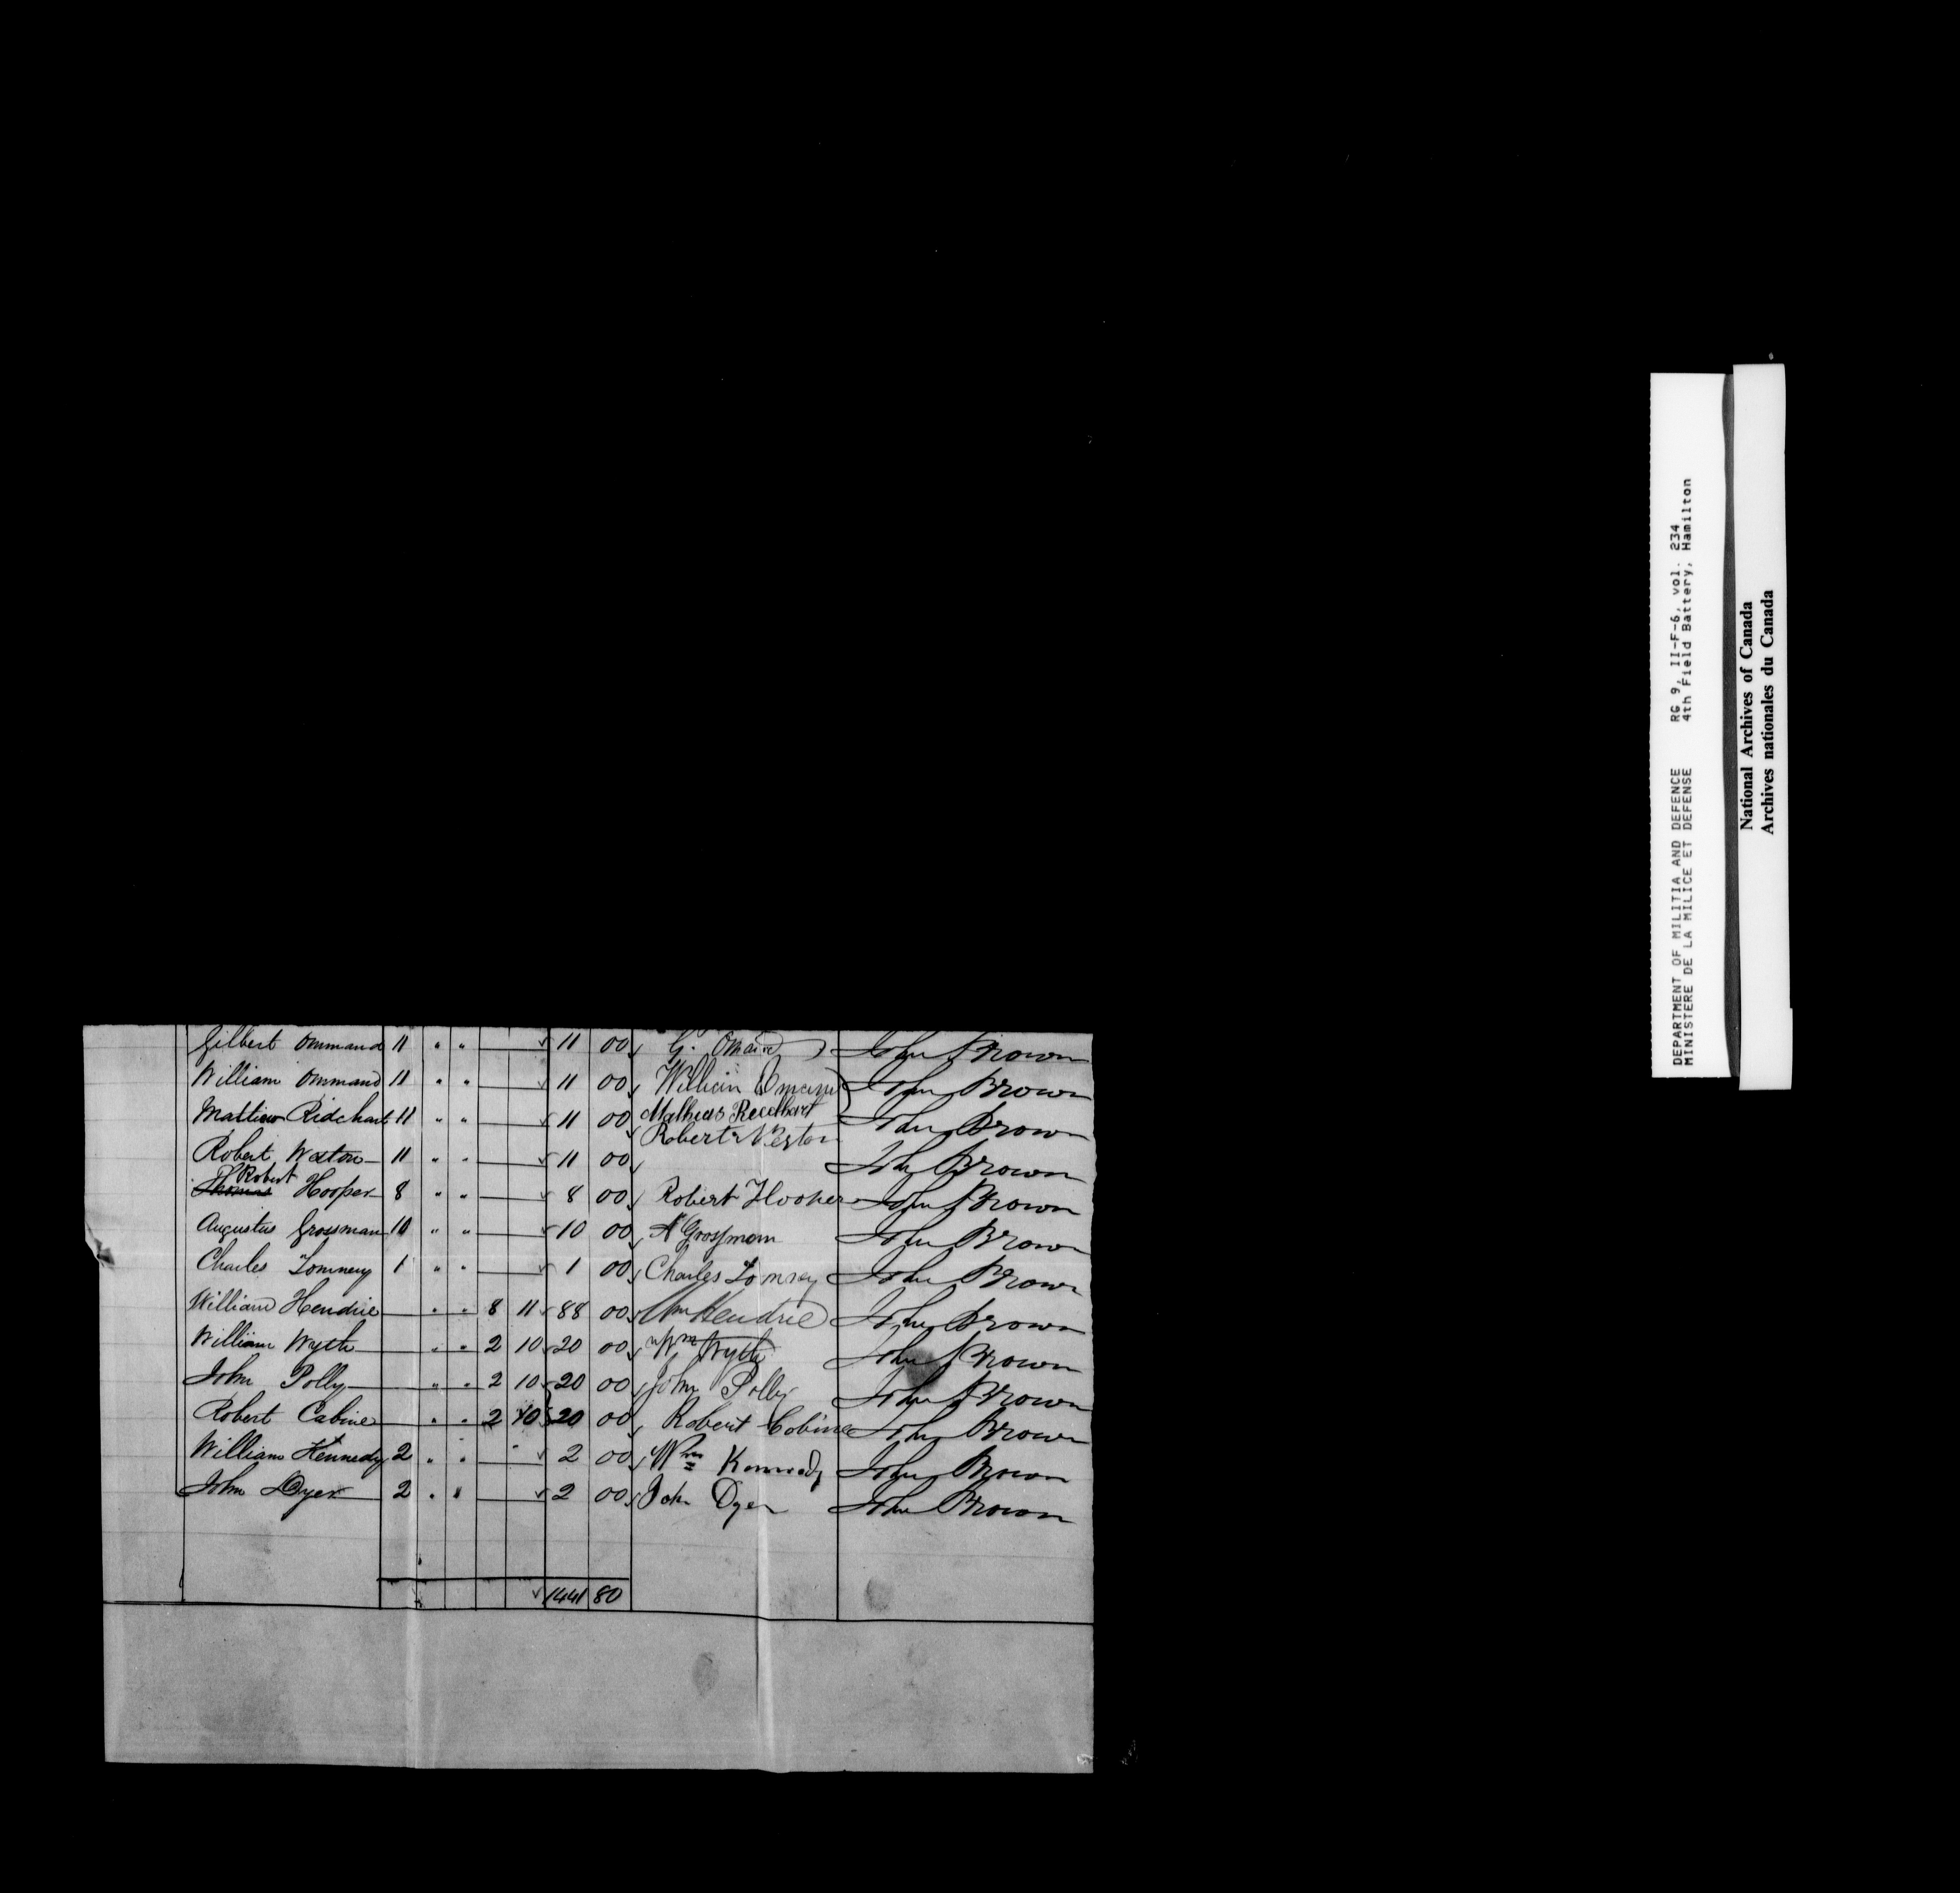 Gilbert Ommand 11 " " 11 00 G. Omand John Brown
William Ommand 11 " " 11 00 William Omand John Brown
Mattiew Ridchart 11 " " 11 00 Mathews John Brown
Robert Weston 11 " " 11 00 Robert Weston John Brown
Robert
Thomas Hooper 8 " " 8 00 Robert Hooper John Brown
Augustus Grossman 10 " " 10 00 A Grossman John Brown
Charles 1 " " 1 00 Charles John Brown
William Hendrie " " 8 11 88 00 Wm Hendrie John Brown
William Wyth " " 2 10 20 00 Wm Wyth John Brown
John Polly " " 2 10 20 00 John Polly John Brown
Robert Cabine " " 2 10 20 00 Robert Cobine John Brown
William Kennedy 2 " " " 2 00 Wm Kennedy John Brown
John Dyer 2 " " 2 00 John Dyer John Brown
1441 80
DEPARTMENT OF MILITIA AND DEFENCE RG 9, II-F-6, vol. 234
MINISTERE DE LA MILICE ET DEFENSE 4th Field Battery, Hamilton
National Archives of Canada
Archives nationales du Canada